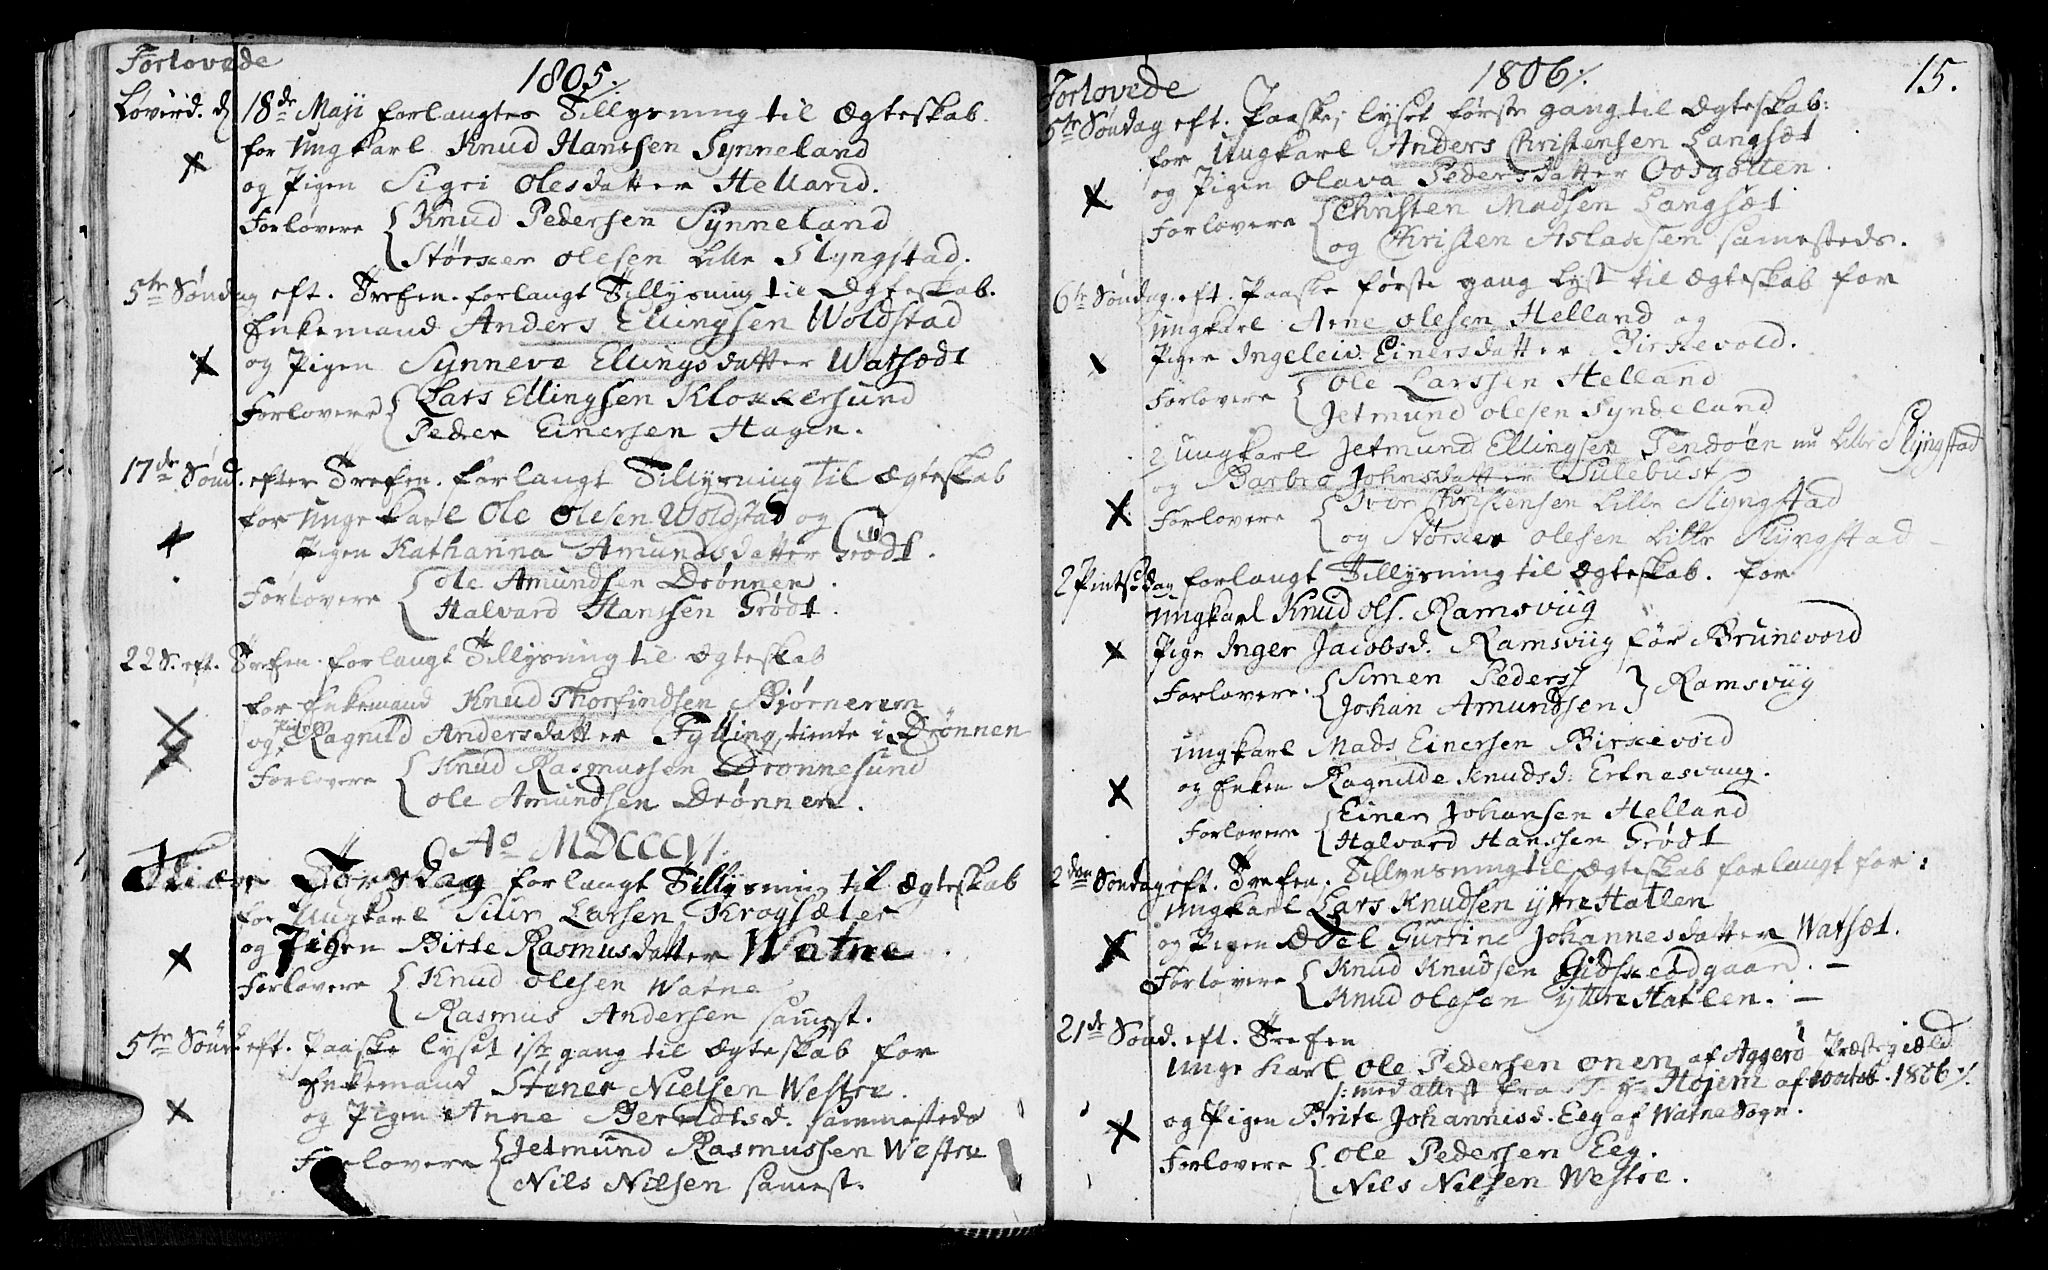 Forlovede
1805/.
Løverd. d 18de Maji forlangtes Tillysning til Ægteskab.
for Ungkarl Knud Hanssen Synneland
og Pigen Sigri Olesdatter Helland.
Forlovere { Knud Pedersen Synneland
Størker Olesen Lille Slyngstad.
5te Søndag eft. Trefen. forlangt Tillysning til Ægteskab.
Enkemand Anders Ellingsen Woldstad
og Pigen Synneve Ellingsdatter Watsædt
Forlovere { Lars Ellingsen Klokkersund
Peder Einersen Hagen.
17de Sønd. efter Trefen. forlangt Tillysning til Ægteskab
for Unge Karl Ole Olesen Woldstad og
Pigen Katharina Amundsdatter Grødt.
Forlovere { Ole Amundsen Drønnen.
Halvard Hanssen Grødt.
22 S. eft. Trefen. forlangt Tillysning til Ægteskab
for Enkemand Knud Thorfindsen Bjørnerem
og Pigen Ragnild Andersdatter Fylling, tiente i Drønnen
Forlovere { Knud Rasmussen Dronnesund
Ole Amundsen Drønnen.
Ao MDCCCVI.
Skiær Torsdag forlangt Tillysning til Ægteskab
for Ungkarl Siur Larsen Krogsæter
og Pigen Birte Rasmusdatter Watne
Forlovere { Knud Olesen Watne
Rasmus Andersen samest.
5te Sønd. eft. Paaske lyset 1ste gang til Ægteskab for
Enkemand Stener Nielsen Westre.
og Pigen Anne Berndtsd. sammesteds
Forlovere { Jetmund Rasmussen Westre
Nils Nilsen samest.
Forlovede
1806/.
15.
5te Søndag eft. Paaske, lyset første gang til Ægteskab:
for Ungkarl Anders Christensen Langsæt
og Pigen Olava Pedersdatter
Forlovere { Christen Madsen Langsæt
og Christen Aslaksen samesteds.
6te Søndag. eft. Paaske første gang lyst til Ægteskab for
Ungkarl Arne Olesen Helland og
Pigen Ingeleiv Einersdatter Birkevold.
Forlovere { Ole Larssen Helland
Jetmund Olesen Syndeland
2 Ungkarl Jetmund Ellingsen Tendøen nu Lille Slyngstad
og Barbro Johnsdatter Dulebust
Forlovere { Iver Christensen Lille Slyngstad
og Størker Olesen Lille Slyngstad
2 Pintsedag forlangt Tillysning til Ægteskab. for
Ungkarl Knud Ols. Ramsviig
Pige Inger Jacobsd. Ramsviig før Brunevold
Forlovere. { Simen Peders
Johan Amundsen } Ramsviig
Ungkarl Mads Einersen Birkevold
og Enken Ragnilde Knudsd: Erknesvaag.
Forlovere { Einer Johansen Helland
Halvard Hanssen Grødt
2den Søndag eft. Trefen. Tillysning til Ægteskab forlangt for:
Ungkarl Lars Knudsen yttre Hatlen
og Pigen Ædel Gurrine Johannesdatter Watsæt.
Forlovere { Knud Knudsen Gidskeødgaard. —
Knud Olesen yttre Hatlen. —
21de Sønd. eft. Trefen
Unge Karl Ole Pedersen Onen af Aggerø Præstegiæld
/: med attest fra Hr Højem af 10 octob. 1806/.
og Pigen Brite Johannisd. Eeg af Watne Sogn.
Forlovere { Ole Pedersen Eeg.
Nils Nilsen Westre.